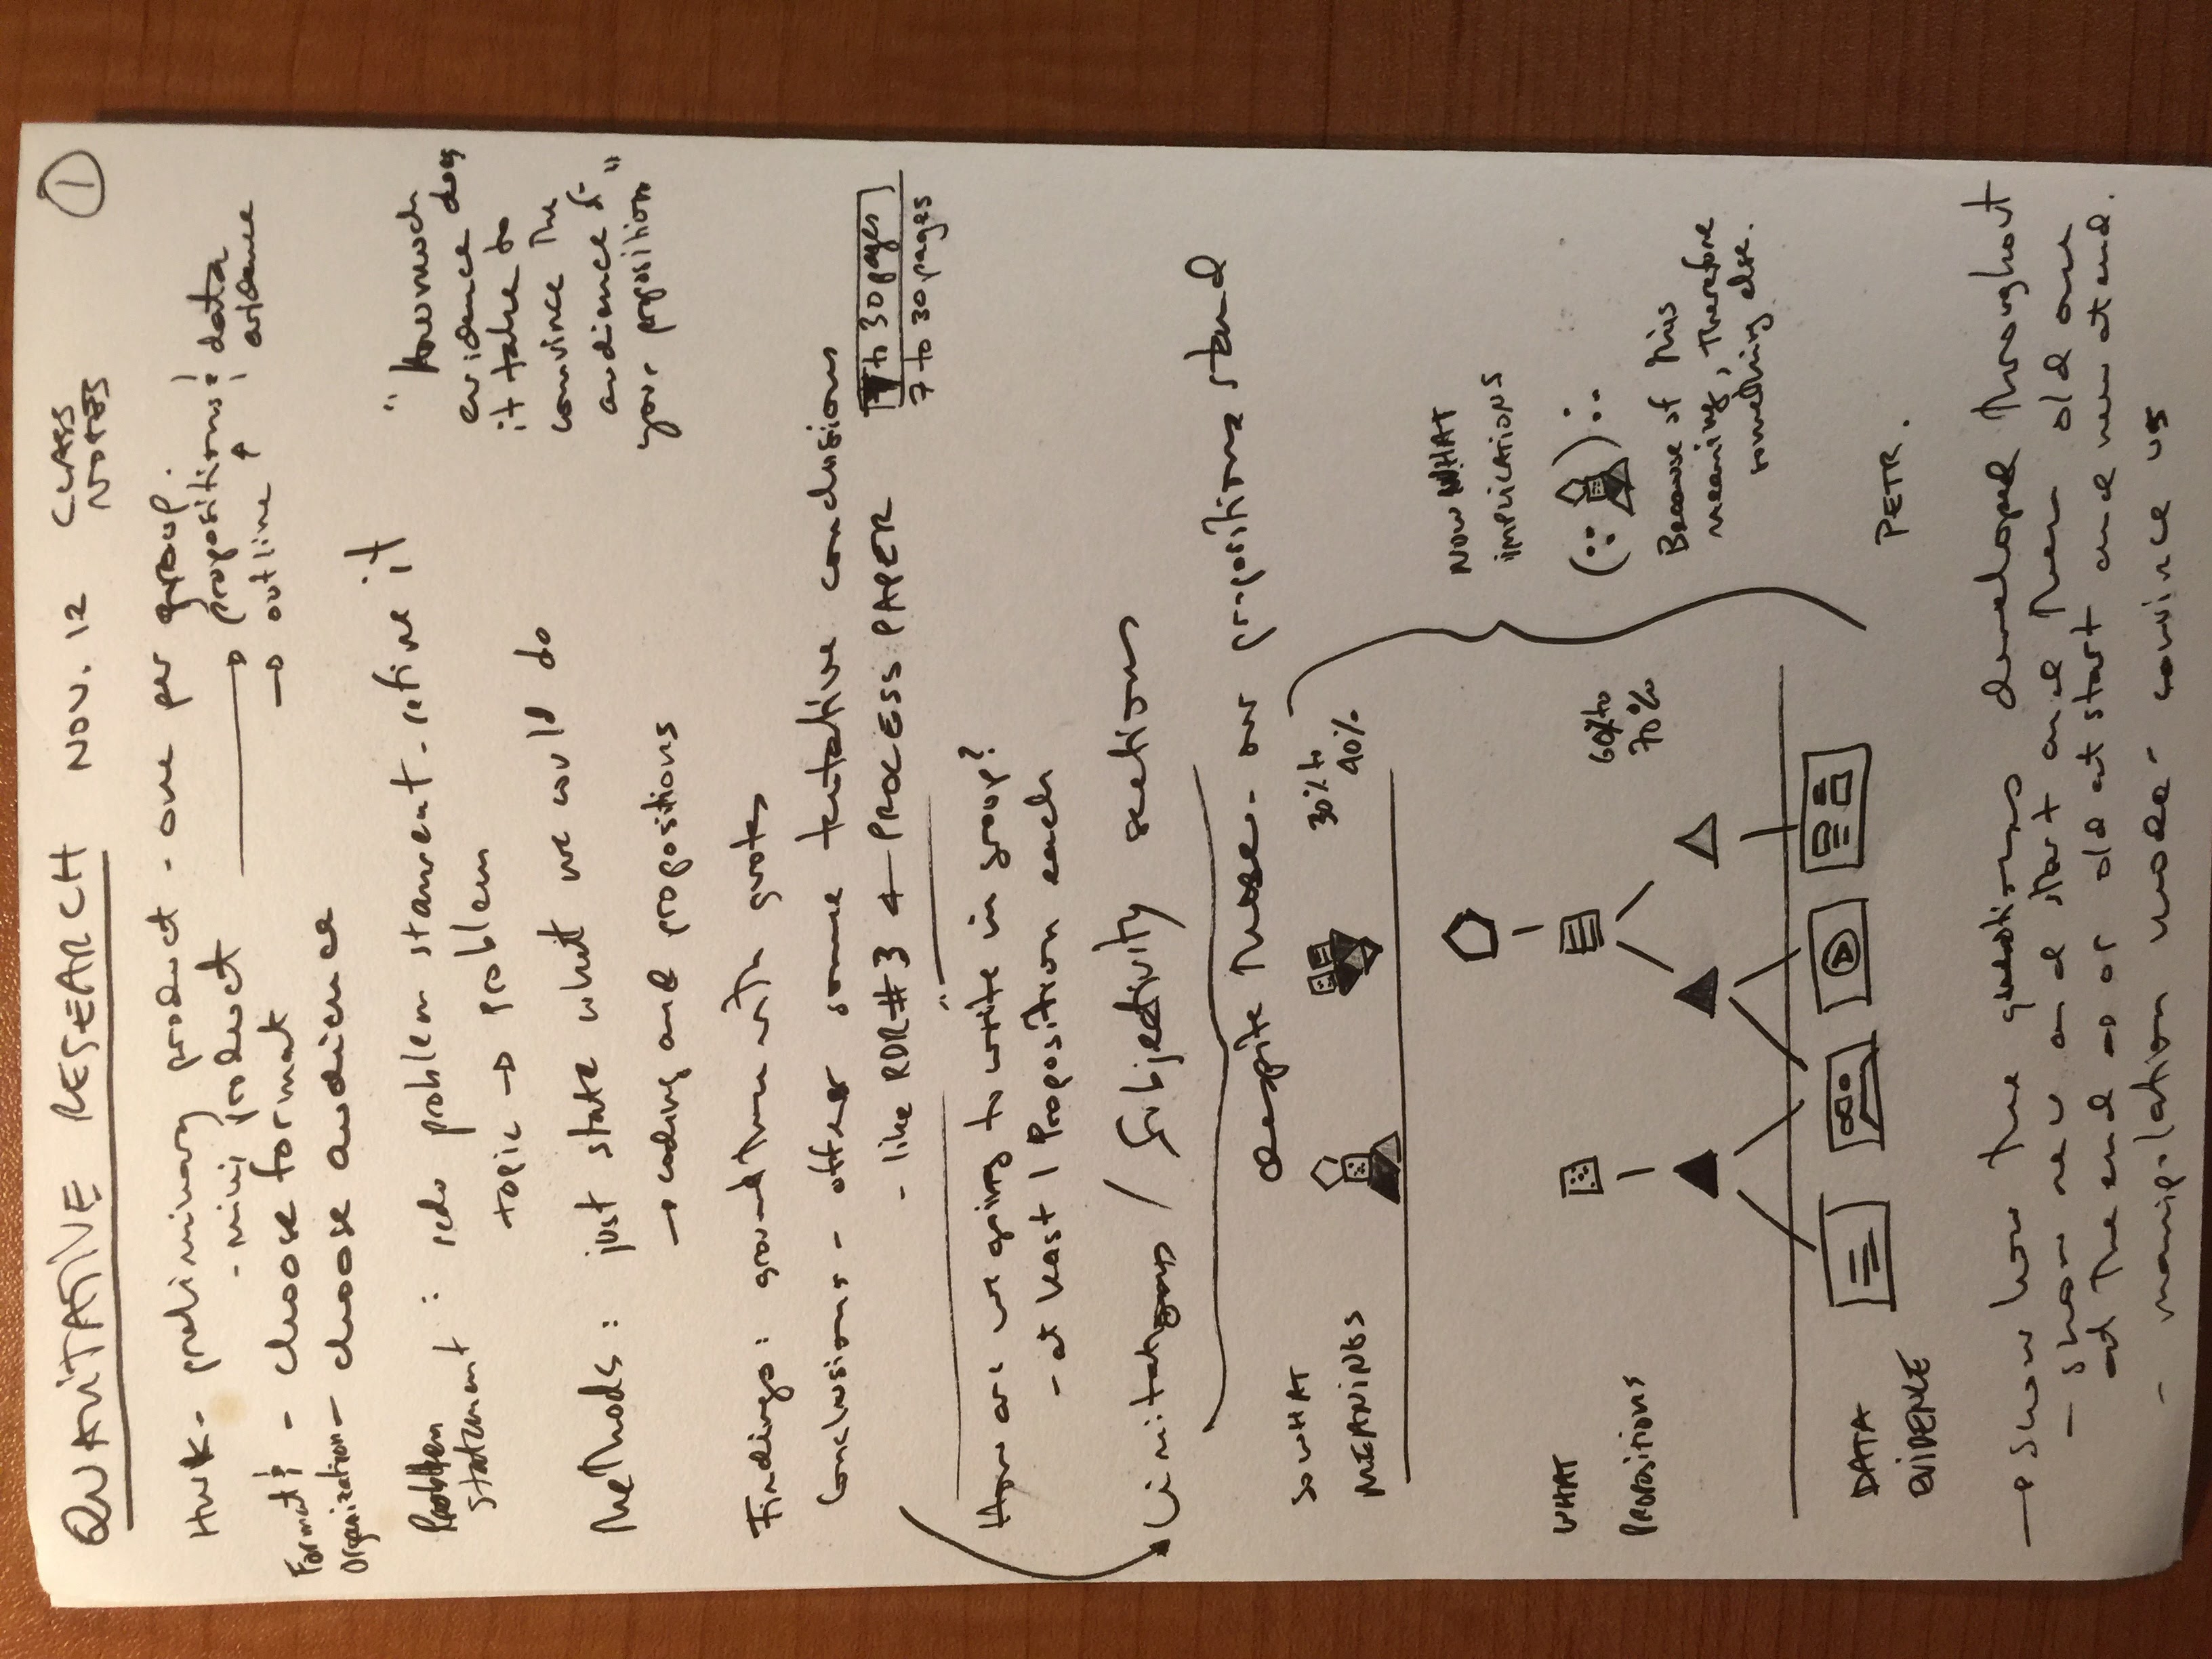 QUALITATIVE RESEARCH NOV. 12 CLASS NOTES ①
HWK - preliminary product - one per group.
- mini product → propositions; data
→ outline ↑ evidence
Format; - choose format
Organization - choose audience
"how much
evidence does
it take to
convince the
audience of
your proposition"
Problem statement : redo problem stament - refine it
topic → problem
Methods : just state what we would do
→ coding and propositions
Findings : ground them with quotes
Conclusions - offer some tentative conclusions
- like RDR #3 ← PROCESS PAPER
7 to 30 pages
7 to 30 pages
How are we going to write in group?
- at least 1 proposition each
Limitations / Subjectivity sections
despite these - our propositions stand
SO WHAT
MEANINGS
30% to
40%
NOW WHAT
IMPLICATIONS
Because of this
meaning, therefore
something else.
WHAT
PROPOSITIONS
60% to
70%
DATA
EVIDENCE
PETR.
→ show how the questions developed throughout
- show new and start and then old one
at the end → or old at start and new at end.
- manipulation mode - convince us